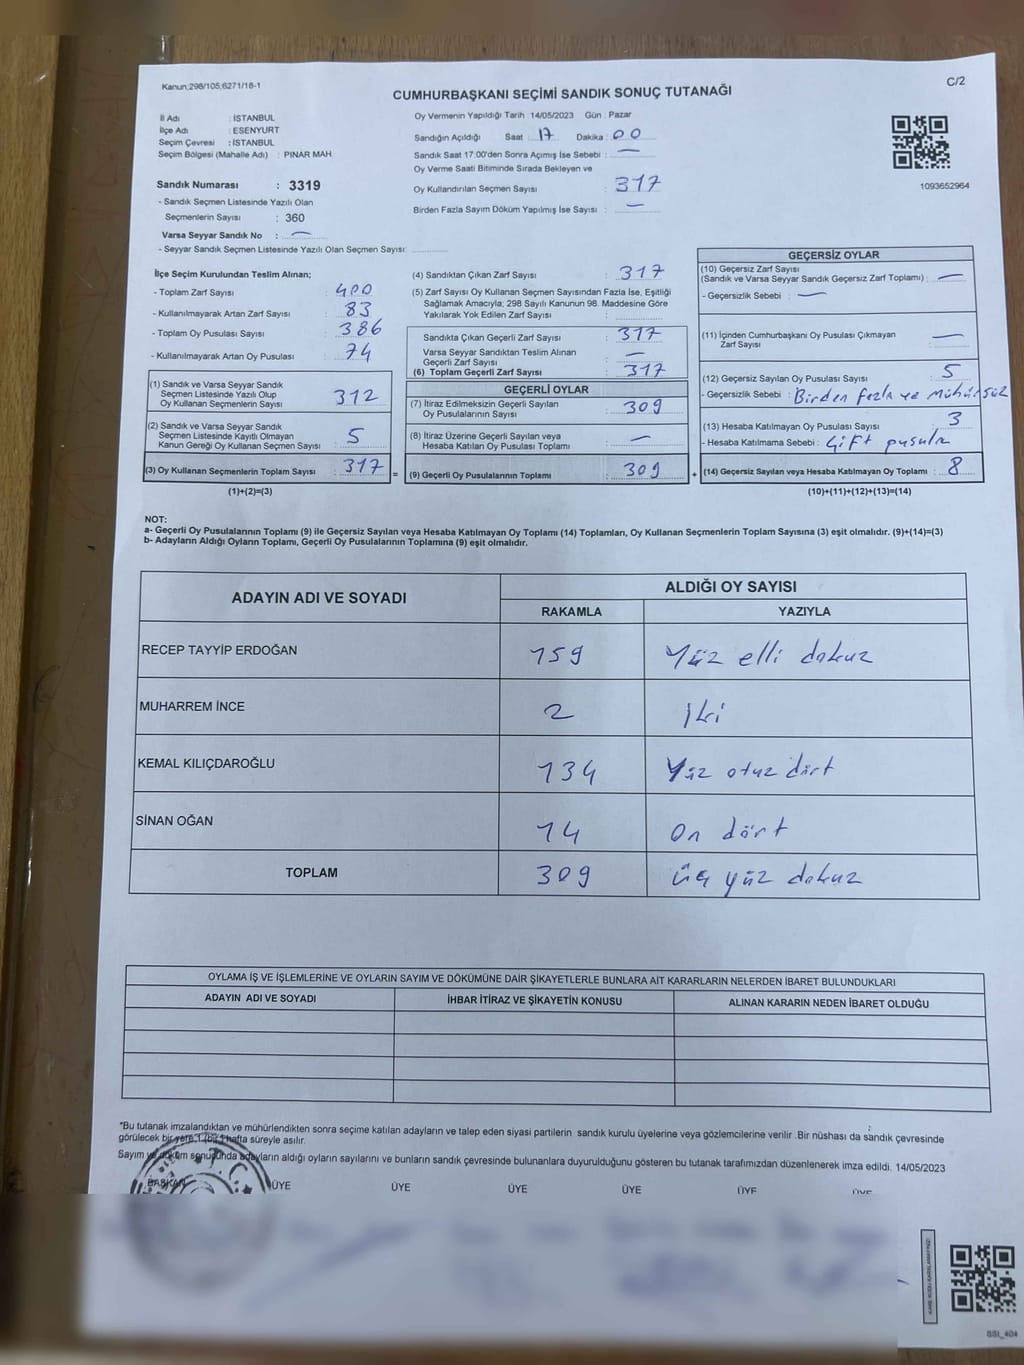 Kanun;298/105;6271/18-1
C/2
CUMHURBAŞKANI SEÇİMİ SANDIK SONUÇ TUTANAĞI
İl Adı : İSTANBUL
İlçe Adı : ESENYURT
Seçim Çevresi : İSTANBUL
Seçim Bölgesi (Mahalle Adı) : PINAR MAH.
Sandık Numarası : 3319
- Sandık Seçmen Listesinde Yazılı Olan
Seçmenlerin Sayısı : 360
Varsa Seyyar Sandık No : —
- Seyyar Sandık Seçmen Listesinde Yazılı Olan Seçmen Sayısı:
Oy Vermenin Yapıldığı Tarih : 14/05/2023 Gün : Pazar
Sandığın Açıldığı Saat : 17 Dakika : 00
Sandık Saat 17:00'den Sonra Açımış İse Sebebi : —
Oy Verme Saati Bitiminde Sırada Bekleyen ve
Oy Kullandırılan Seçmen Sayısı : 317
Birden Fazla Sayım Döküm Yapılmış İse Sayısı : —
1093652964
İlçe Seçim Kurulundan Teslim Alınan;
- Toplam Zarf Sayısı : 400
- Kullanılmayarak Artan Zarf Sayısı : 83
- Toplam Oy Pusulası Sayısı : 386
- Kullanılmayarak Artan Oy Pusulası : 74
(1) Sandık ve Varsa Seyyar Sandık
Seçmen Listesinde Yazılı Olup
Oy Kullanan Seçmenlerin Sayısı : 312
(2) Sandık ve Varsa Seyyar Sandık
Seçmen Listesinde Kayıtlı Olmayan
Kanun Gereği Oy Kullanan Seçmen Sayısı : 5
(3) Oy Kullanan Seçmenlerin Toplam Sayısı : 317
(1)+(2)=(3)
(4) Sandıktan Çıkan Zarf Sayısı : 317
(5) Zarf Sayısı Oy Kullanan Seçmen Sayısından Fazla İse, Eşitliği
Sağlamak Amacıyla; 298 Sayılı Kanunun 98. Maddesine Göre
Yakılarak Yok Edilen Zarf Sayısı :
Sandıkta Çıkan Geçerli Zarf Sayısı : 317
Varsa Seyyar Sandıktan Teslim Alınan
Geçerli Zarf Sayısı : —
(6) Toplam Geçerli Zarf Sayısı : 317
GEÇERLİ OYLAR
(7) İtiraz Edilmeksizin Geçerli Sayılan
Oy Pusulalarının Sayısı : 309
(8) İtiraz Üzerine Geçerli Sayılan veya
Hesaba Katılan Oy Pusulası Toplamı : —
= (9) Geçerli Oy Pusulalarının Toplamı : 309
GEÇERSİZ OYLAR
(10) Geçersiz Zarf Sayısı
(Sandık ve Varsa Seyyar Sandık Geçersiz Zarf Toplamı) : —
- Geçersizlik Sebebi : —
(11) İçinden Cumhurbaşkanı Oy Pusulası Çıkmayan
Zarf Sayısı : —
(12) Geçersiz Sayılan Oy Pusulası Sayısı : 5
- Geçersizlik Sebebi : Birden fazla ve mühürsüz
(13) Hesaba Katılmayan Oy Pusulası Sayısı : 3
- Hesaba Katılmama Sebebi : Çift pusula
+ (14) Geçersiz Sayılan veya Hesaba Katılmayan Oy Toplamı : 8
(10)+(11)+(12)+(13)=(14)
NOT:
a- Geçerli Oy Pusulalarının Toplamı (9) ile Geçersiz Sayılan veya Hesaba Katılmayan Oy Toplamı (14) Toplamları, Oy Kullanan Seçmenlerin Toplam Sayısına (3) eşit olmalıdır. (9)+(14)=(3)
b- Adayların Aldığı Oyların Toplamı, Geçerli Oy Pusulalarının Toplamına (9) eşit olmalıdır.
ADAYIN ADI VE SOYADI
ALDIĞI OY SAYISI
RAKAMLA YAZIYLA
RECEP TAYYİP ERDOĞAN 159 Yüz elli dokuz
MUHARREM İNCE 2 İki
KEMAL KILIÇDAROĞLU 134 Yüz otuz dört
SİNAN OĞAN 14 On dört
TOPLAM 309 üç yüz dokuz
OYLAMA İŞ VE İŞLEMLERİNE VE OYLARIN SAYIM VE DÖKÜMÜNE DAİR ŞİKAYETLERLE BUNLARA AİT KARARLARIN NELERDEN İBARET BULUNDUKLARI
ADAYIN ADI VE SOYADI İHBAR İTİRAZ VE ŞİKAYETİN KONUSU ALINAN KARARIN NEDEN İBARET OLDUĞU
*Bu tutanak imzalandıktan ve mühürlendikten sonra seçime katılan adayların ve talep eden siyasi partilerin sandık kurulu üyelerine veya gözlemcilerine verilir .Bir nüshası da sandık çevresinde
görülecek bir yere 1 (bir) hafta süreyle asılır.
Sayım ve döküm sonucunda adayların aldığı oyların sayılarını ve bunların sandık çevresinde bulunanlara duyurulduğunu gösteren bu tutanak tarafımızdan düzenlenerek imza edildi. 14/05/2023
BAŞKAN ÜYE ÜYE ÜYE ÜYE ÜYE ÜYE
T.C.